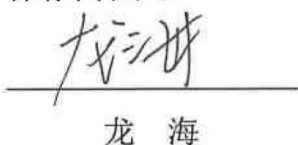 龙海
龙 海